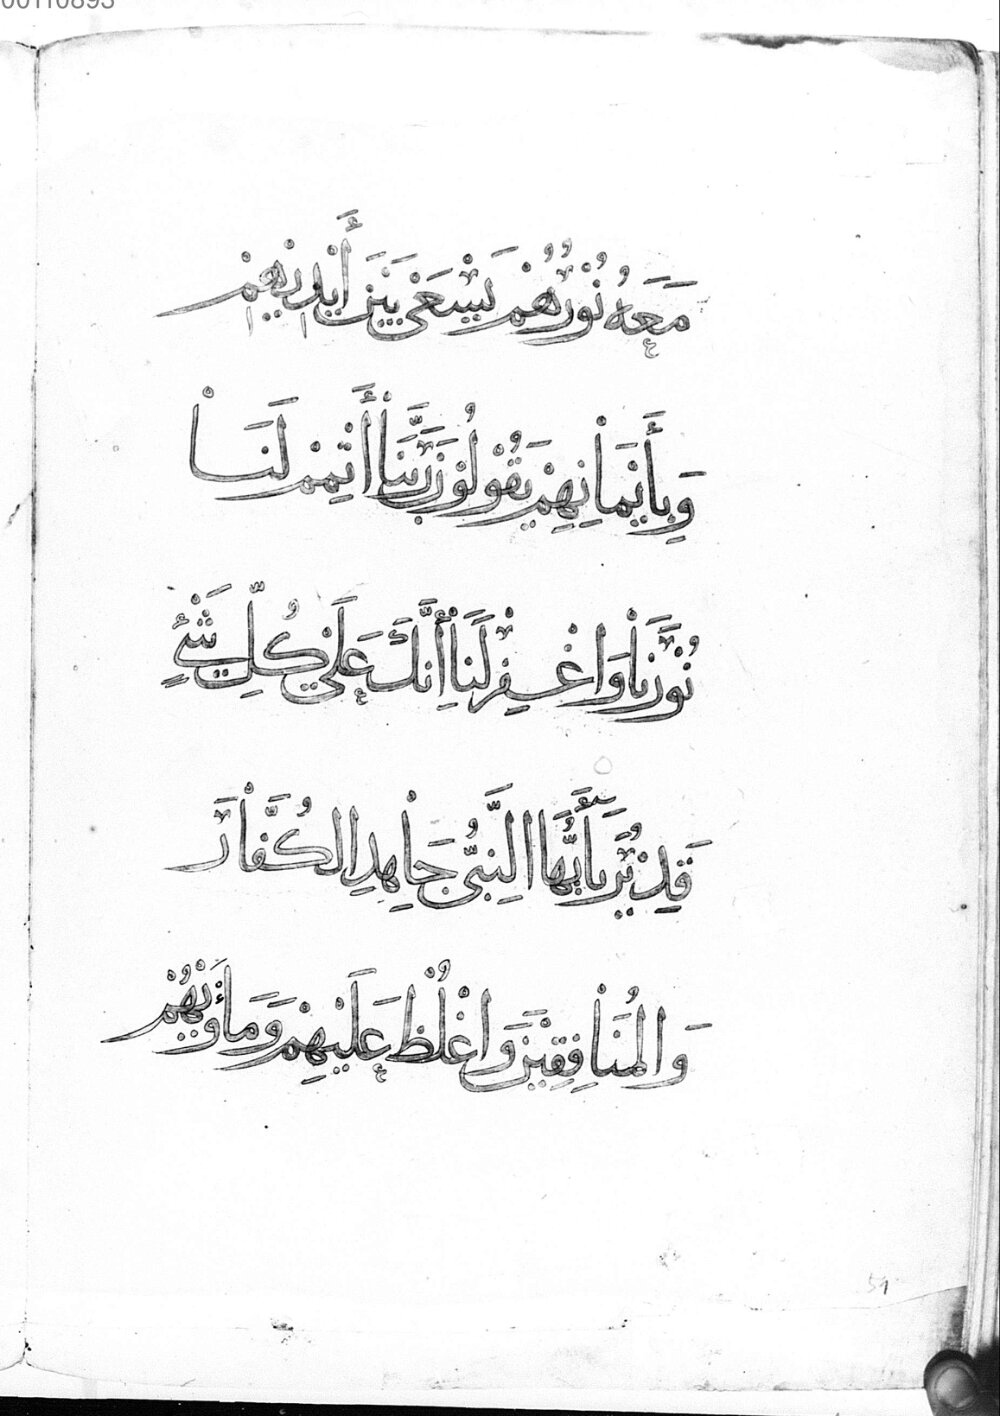 00110893
مَعَهُ نُورُهُمْ يَسْعَىٰ بَيْنَ أَيْدِيهِمْ
وَبِأَيْمَانِهِمْ يَقُولُونَ رَبَّنَا أَتْمِمْ لَنَا
نُورَنَا وَاغْفِرْ لَنَا إِنَّكَ عَلَىٰ كُلِّ شَيْءٍ
قَدِيرٌ يَا أَيُّهَا النَّبِيُّ جَاهِدِ الْكُفَّارَ
وَالْمُنَافِقِينَ وَاغْلُظْ عَلَيْهِمْ وَمَأْوَىٰهُمْ
51